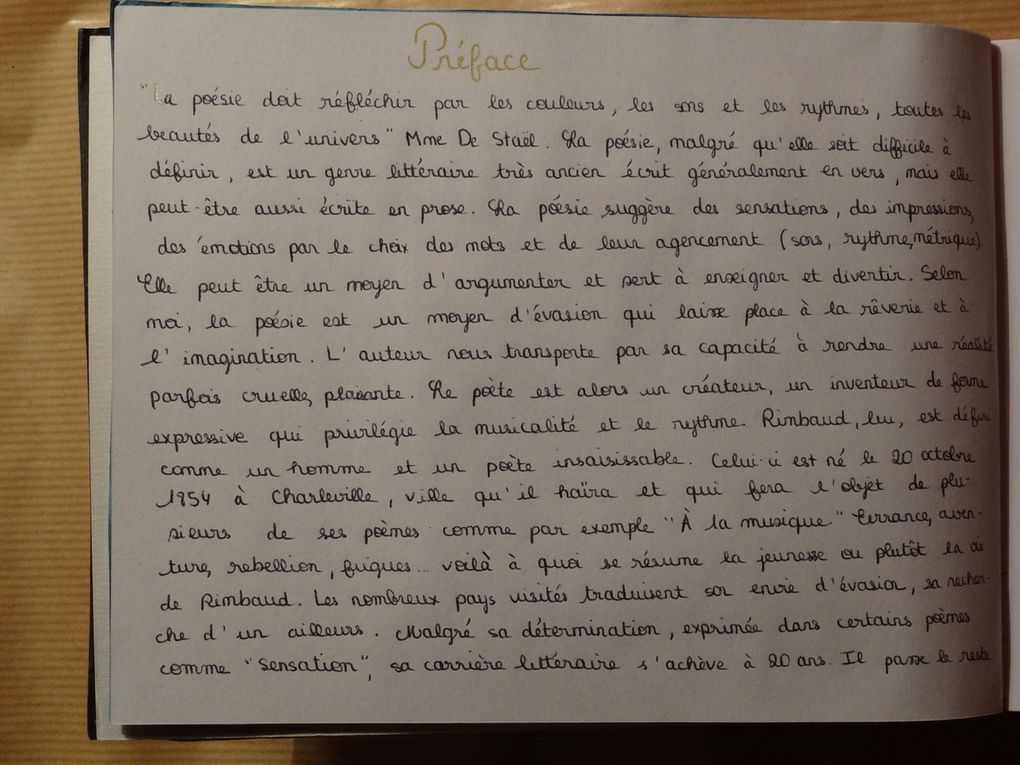 Préface
"La poésie doit réfléchir par les couleurs, les sons et les rythmes, toutes les
beautés de l'univers" Mme De Staël. La poésie, malgré qu'elle soit difficile à
définir, est un genre littéraire très ancien écrit généralement en vers, mais elle
peut-être aussi écrite en prose. La poésie suggère des sensations, des impressions,
des émotions par le choix des mots et de leur agencement (sons, rythme, métrique)
Elle peut être un moyen d'argumenter et sert à enseigner et divertir. Selon
moi, la poésie est un moyen d'évasion qui laisse place à la rêverie et à
l'imagination. L'auteur nous transporte par sa capacité à rendre une réalité
parfois cruelle, plaisante. Le poète est alors un créateur, un inventeur de forme
expressive qui privilégie la musicalité et le rythme. Rimbaud, lui, est défini
comme un homme et un poète insaisissable. Celui-ci est né le 20 octobre
1854 à Charleville, ville qu'il haïra et qui fera l'objet de plu-
sieurs de ses poèmes comme par exemple "À la musique" Errance, aven-
ture, rebellion, fugues... voilà à quoi se résume la jeunesse ou plutôt la vie
de Rimbaud. Les nombreux pays visités traduisent son envie d'évasion, sa recher-
che d'un ailleurs. Malgré sa détermination, exprimée dans certains poèmes
comme "Sensation", sa carrière littéraire s'achève à 20 ans. Il passe le reste